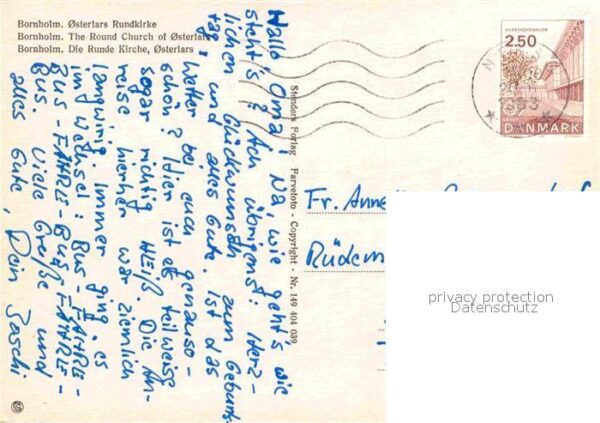 Bornholm. Østerlars Rundkirke
Bornholm. The Round Church of Østerlars
Bornholm. Die Runde Kirche, Østerlars
Hallo Oma! Na, wie geht's, wie
steht's? Ach übrigens: Herz-
lichen Glückwunsch zum Geburts-
tag und alles Gute. Ist das
Wetter bei euch genauso
schön? Hier ist es teilweise
sogar richtig HEIß. Die An-
reise hierher war ziemlich
langwierig. Immer ging es
im Wechsel: BUS-FÄHRE-
BUS-FÄHRE-BUS-FÄHRE-
BUS. Viele Grüße und
alles Gute, Dein
Stenders Forlag Farvefoto - Copyright - Nr. 149 404 039
2.50
DANMARK
Fr.
privacy protection
Datenschutz